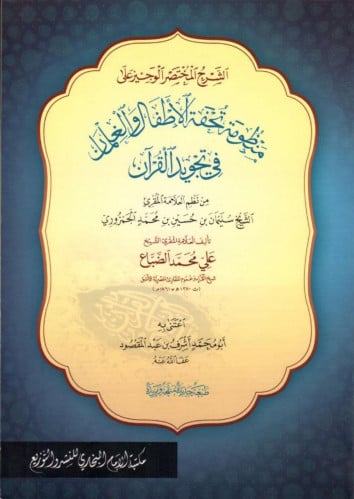 الشرح المختصر الوجيز على
منظومة تحفة الأطفال والغلمان
في تجويد القرآن
من نظم العلامة المقرئ
الشيخ سليمان بن حسين بن محمد الجمزوري
تأليف العلامة المقرئ الشيخ
علي محمد الضباع
شيخ القراء وعموم المقارئ المصرية الأسبق
اعتنى به
أبو محمد أشرف بن عبد المقصود
عفا الله عنه
طبعة جديدة منقحة ومزيدة
مكتبة الإمام البخاري للنشر والتوزيع